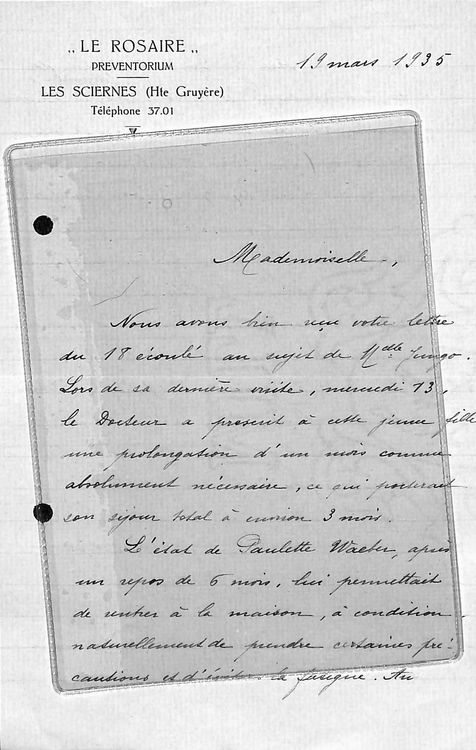 „ LE ROSAIRE „
PREVENTORIUM
LES SCIERNES (Hte Gruyère)
Téléphone 37.01
19 mars 1935
Mademoiselle,
Nous avons bien reçu votre lettre
du 18 écoulé au sujet de Melle Jungo.
Lors de sa dernière visite, mercredi 13,
le Docteur a prescrit à cette jeune fille
une prolongation d'un mois comme
absolument nécessaire, ce qui porterait
son séjour total à environ 3 mois.
L'état de Paulette Waeber, après
un repos de 6 mois, lui permettait
de rentrer à la maison, à condition
naturellement de prendre certaines pré-
cautions et d'éviter la fatigue. Au